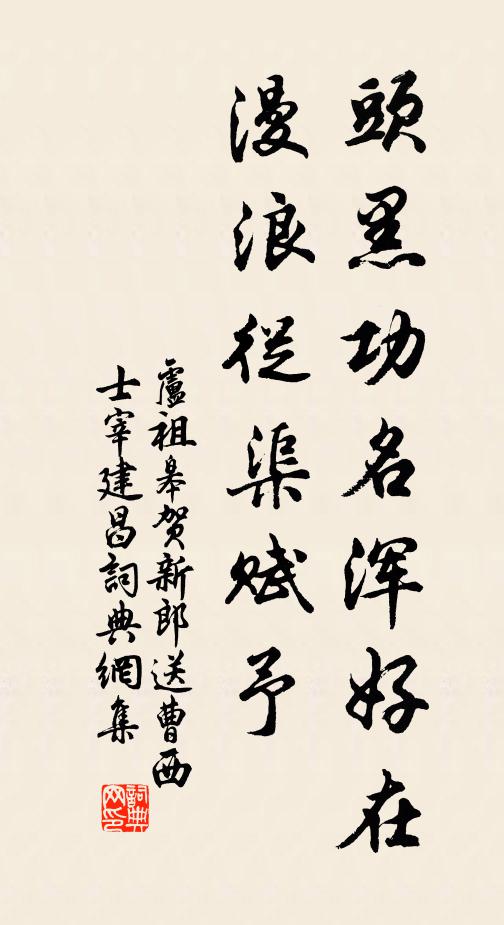 頭黑功名浑好在
漫浪從渠赋予
盧祖皋贺新郎送曹西
士宰建昌詞典網集
詞典网印